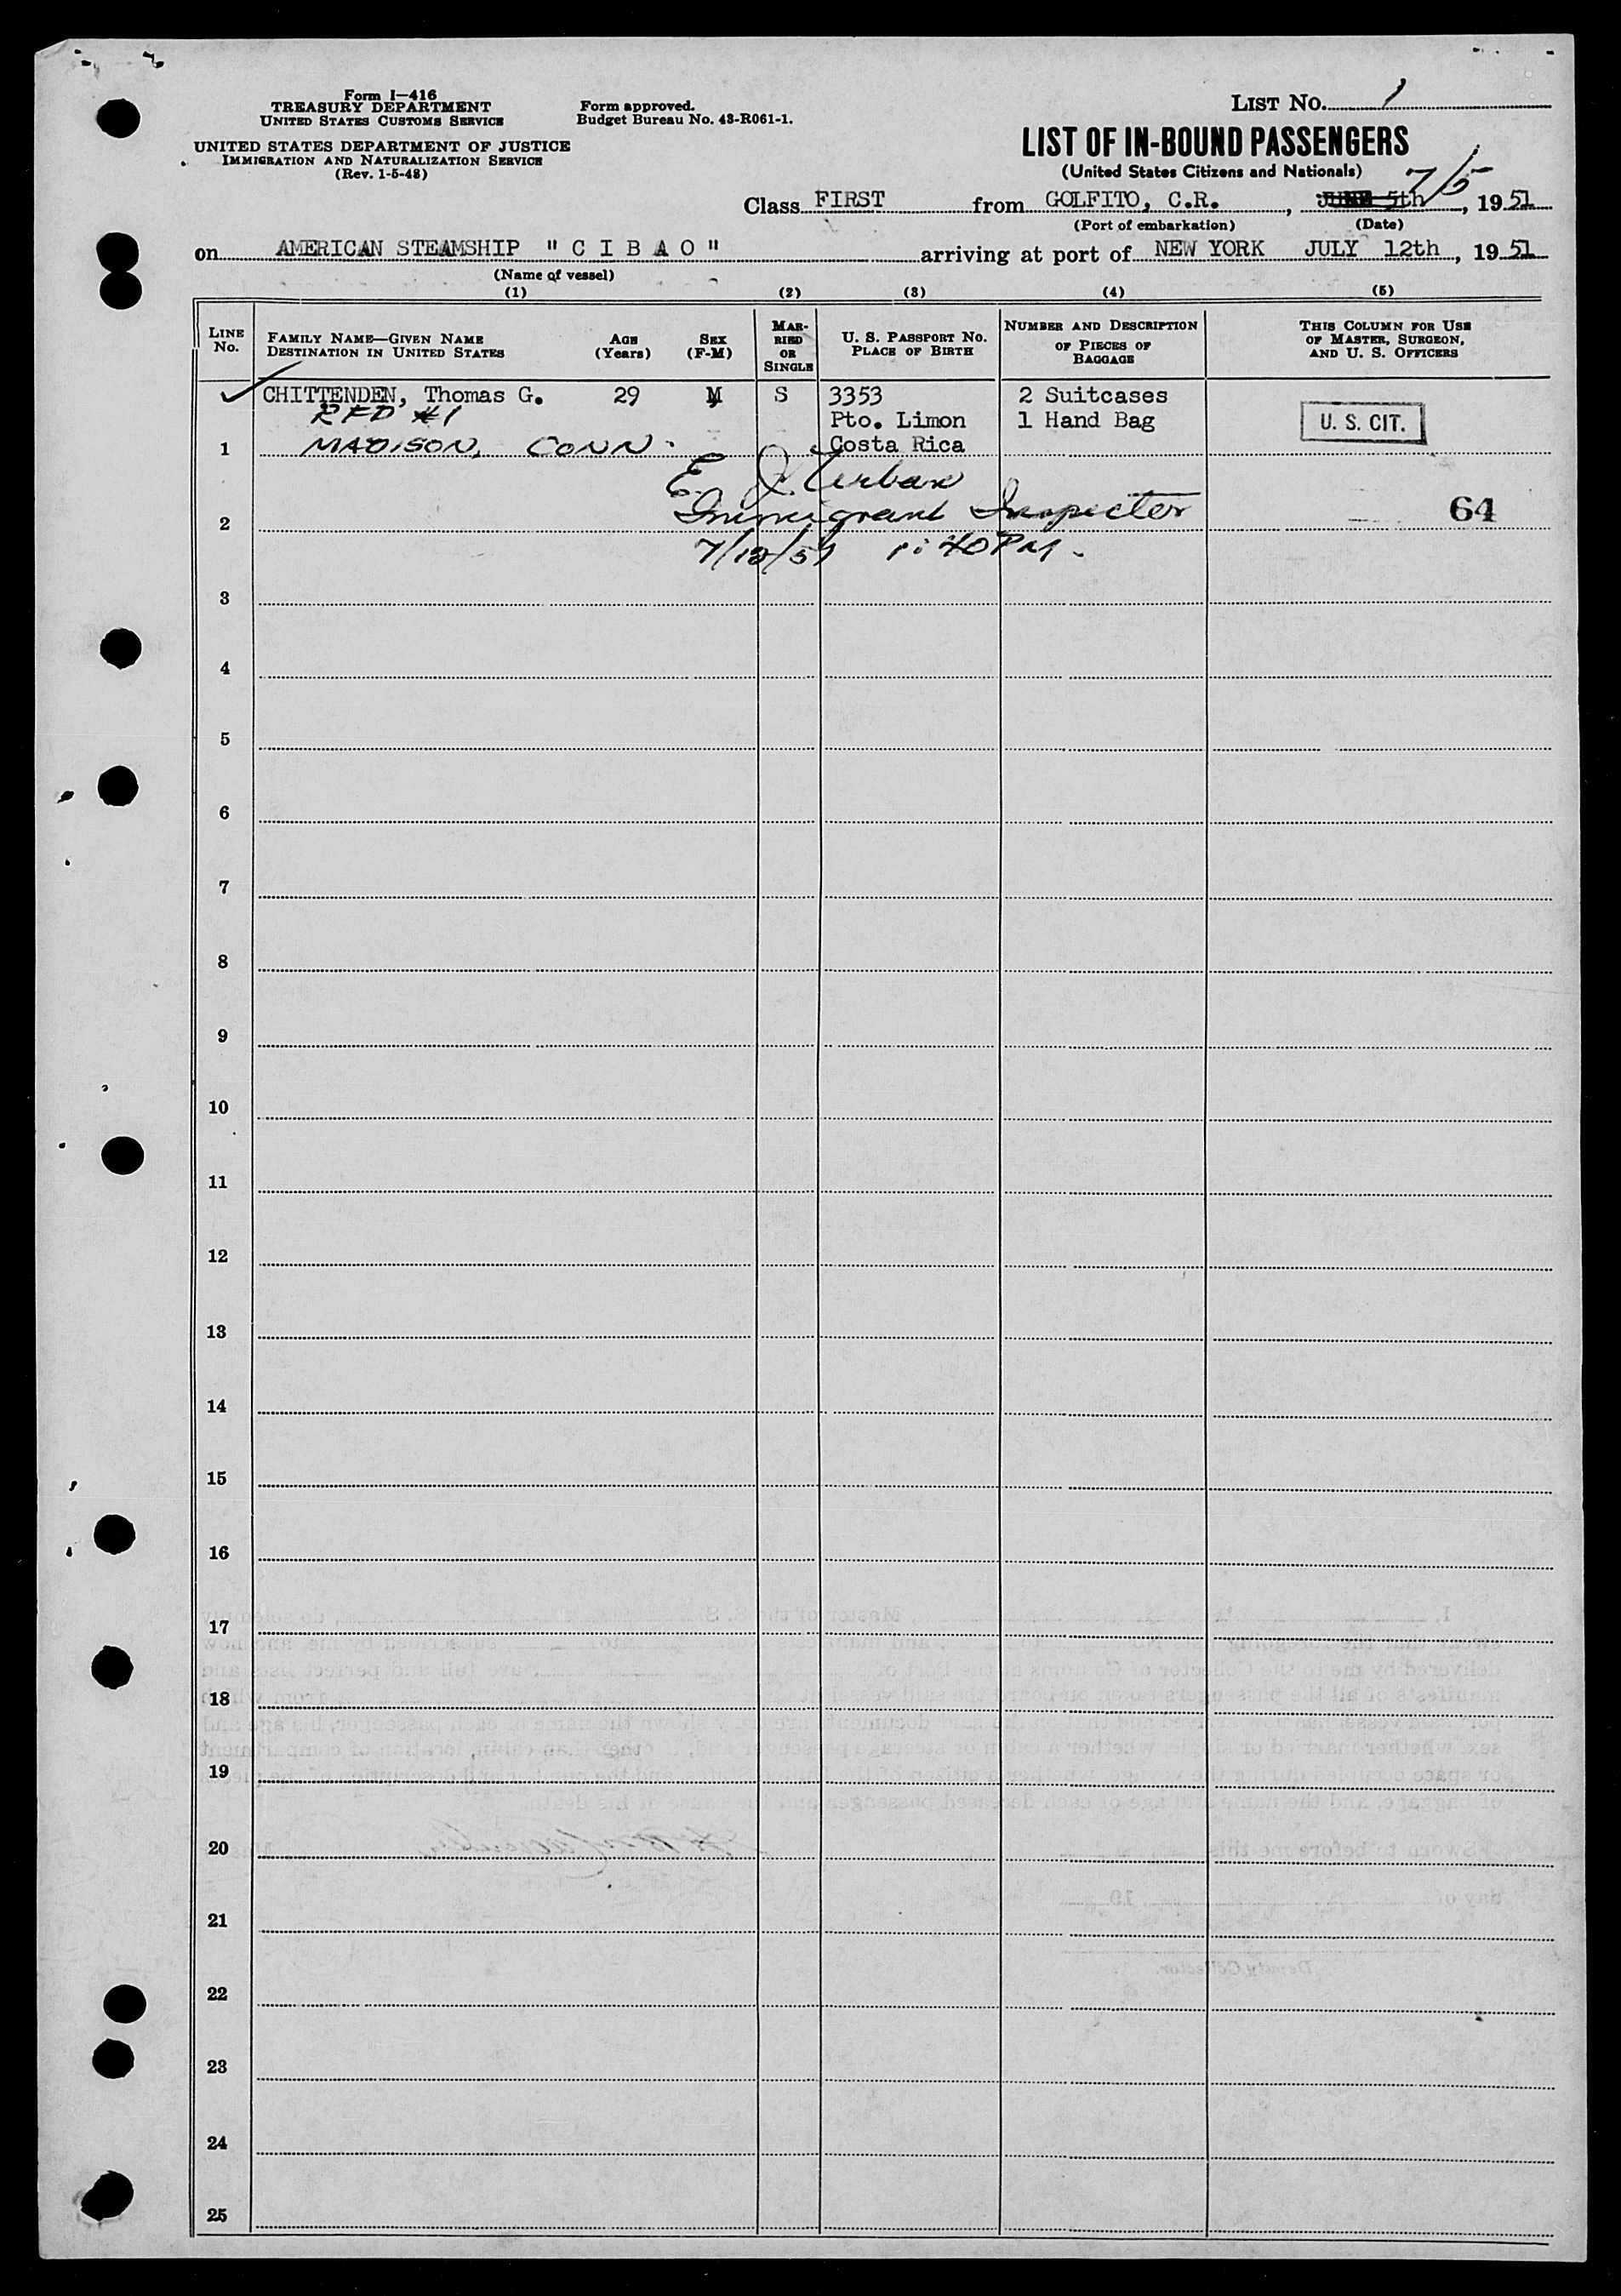 Form I—416
TREASURY DEPARTMENT
UNITED STATES CUSTOMS SERVICE
UNITED STATES DEPARTMENT OF JUSTICE
IMMIGRATION AND NATURALIZATION SERVICE
(Rev. 1-5-48)
Form approved.
Budget Bureau No. 43-R061-1.
LIST NO. 1
LIST OF IN-BOUND PASSENGERS
(United States Citizens and Nationals)
Class FIRST from GOLFITO, C.R., 5th 7/5, 1951
(Port of embarkation) (Date)
on AMERICAN STEAMSHIP "C I B A O" arriving at port of NEW YORK JULY 12th, 1951
(Name of vessel)
(1) (2) (3) (4) (5)
LINE No.
FAMILY NAME—GIVEN NAME
DESTINATION IN UNITED STATES
AGE (Years)
SEX (F-M)
MARRIED OR SINGLE
U. S. PASSPORT NO.
PLACE OF BIRTH
NUMBER AND DESCRIPTION
OF PIECES OF
BAGGAGE
THIS COLUMN FOR USE
OF MASTER, SURGEON,
AND U. S. OFFICERS
CHITTENDEN, Thomas G. 29 M S 3353 2 Suitcases
RFD #1 Pto. Limon 1 Hand Bag U. S. CIT.
1 MADISON, CONN. Costa Rica
E. J. Urban
Immigrant Inspector 64
2
7/12/51 1:40 PM.
3
4
5
6
7
8
9
10
11
12
13
14
15
16
17
18
19
20
21
22
23
24
25